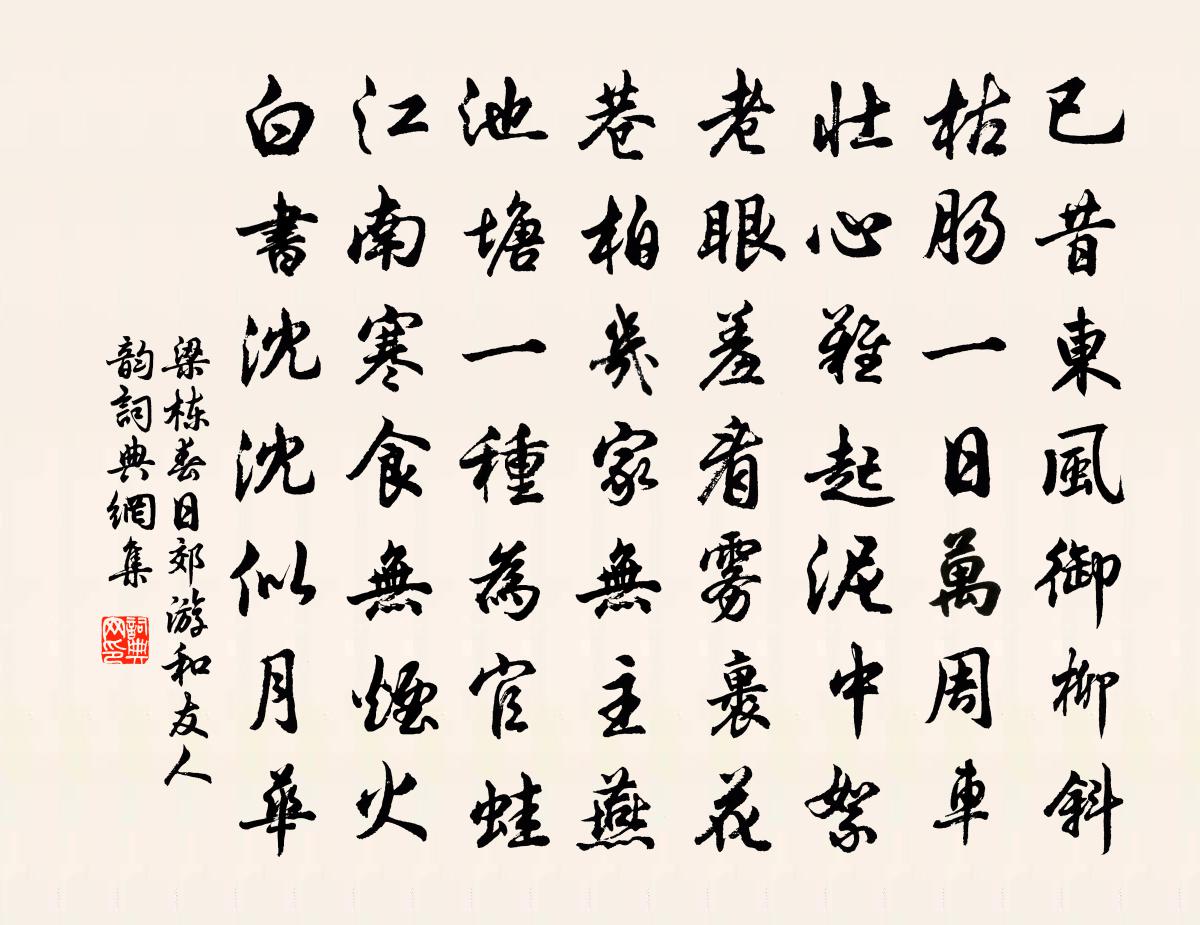 已昔東風御柳斜
枯腸一日萬周車
壮心難起泥中絮
老眼羞看雾裏花
巷柏幾家無主燕
池塘一種為官蛙
江南寒食無煙火
白書沈沈似月華
梁栋春日郊游和友人
韵詞典網集
詞典网印